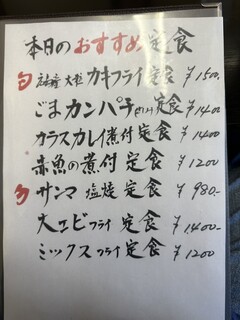 本日のおすすめ定食
旬 大粒 カキフライ定食 ¥1500,
ごまカンパチ 定食 ¥1400
カラスカレイ煮付定食 ¥1400
赤魚の煮付 定食 ¥1200
旬 サンマ 塩焼 定食 ¥980-
大エビフライ 定食 ¥1400-
ミックスフライ 定食 ¥1200